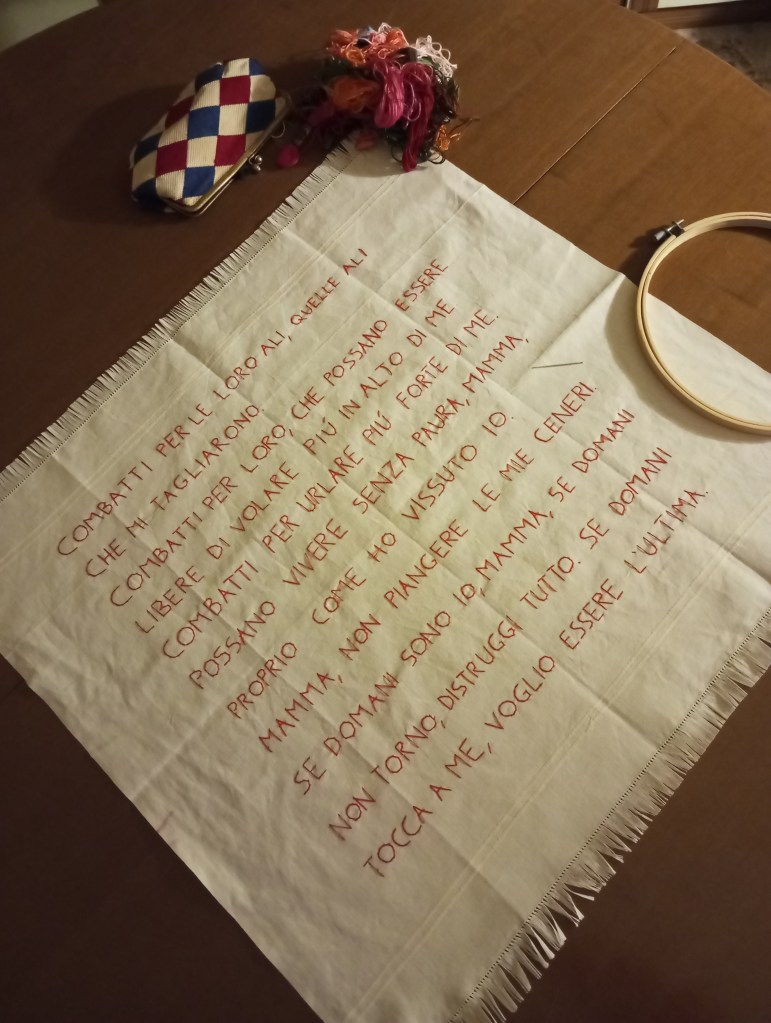 COMBATTI PER LE LORO ALI, QUELLE ALI
CHE MI TAGLIARONO.
COMBATTI PER LORO, CHE POSSANO ESSERE
LIBERE DI VOLARE PIÚ IN ALTO DI ME
COMBATTI PER URLARE PIÚ FORTE DI ME.
POSSANO VIVERE SENZA PAURA, MAMMA,
PROPRIO COME HO VISSUTO IO.
MAMMA, NON PIANGERE LE MIE CENERI.
SE DOMANI SONO IO, MAMMA, SE DOMANI
NON TORNO, DISTRUGGI TUTTO. SE DOMANI
TOCCA A ME, VOGLIO ESSERE L'ULTIMA.